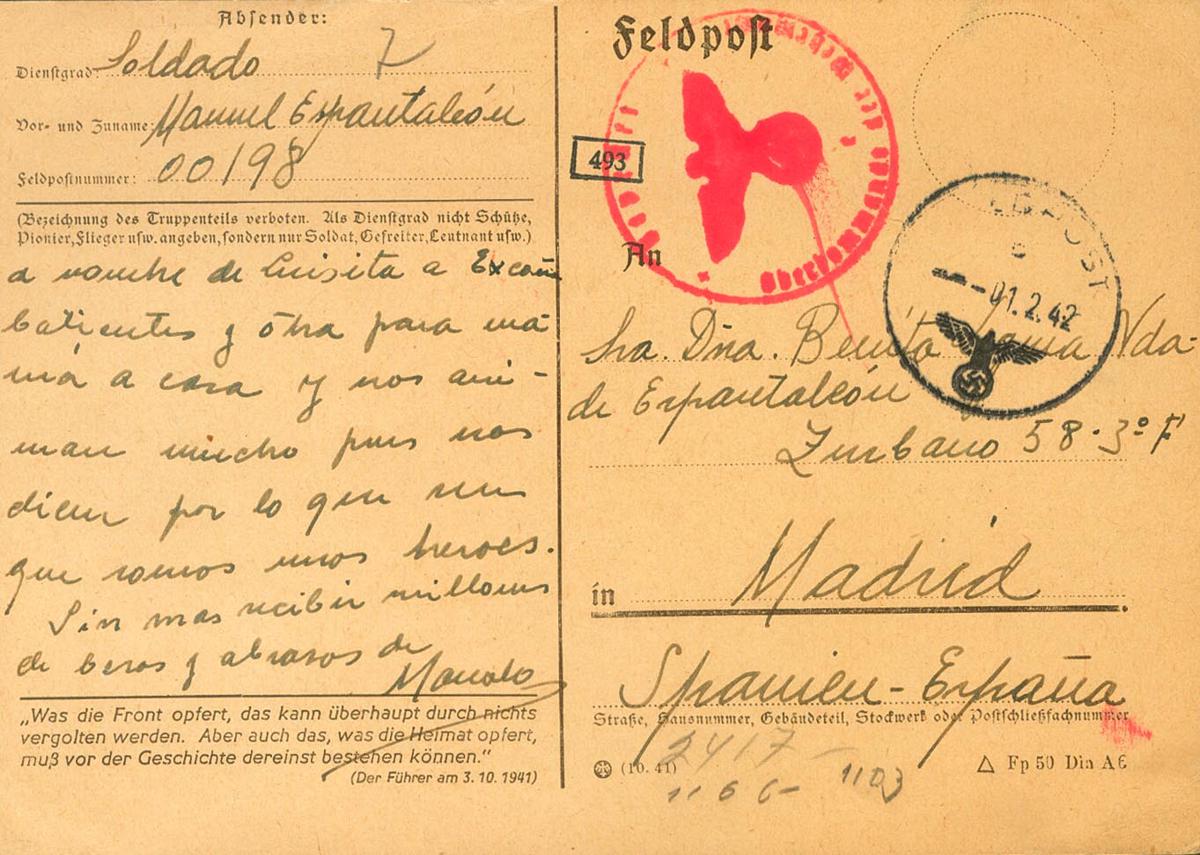 Absender:
Dienstgrad: Soldado 7
Vor- und Zuname: Manuel Espantaleón
Feldpostnummer: 00198
(Bezeichnung des Truppenteils verboten. Als Dienstgrad nicht Schütze,
Pionier, Flieger usw. angeben, sondern nur Soldat, Gefreiter, Leutnant usw.)
a nombre de Luisita a Excom
batientes y otra para ma
má a casa y nos ani-
man mucho pues nos
dicen por lo que
que somos unos heroes.
Sin mas recibir millones
de besos y abrazos de
Manolo
„Was die Front opfert, das kann überhaupt durch nichts
vergolten werden. Aber auch das, was die Heimat opfert,
muß vor der Geschichte dereinst bestehen können."
(Der Führer am 3. 10. 1941)
Feldpost
493
Oberkommando der
FELDPOST
c
-1.2.42
An
Sra. Dña. Benita Vda.
de Espantaleón
Zurbano 58-3º F
in Madrid
Spanien-España
Straße, Hausnummer, Gebäudeteil, Stockwerk oder Postschließfachnummer
2417
(10. 41)
Fp 50 Din A6
1166- 1103